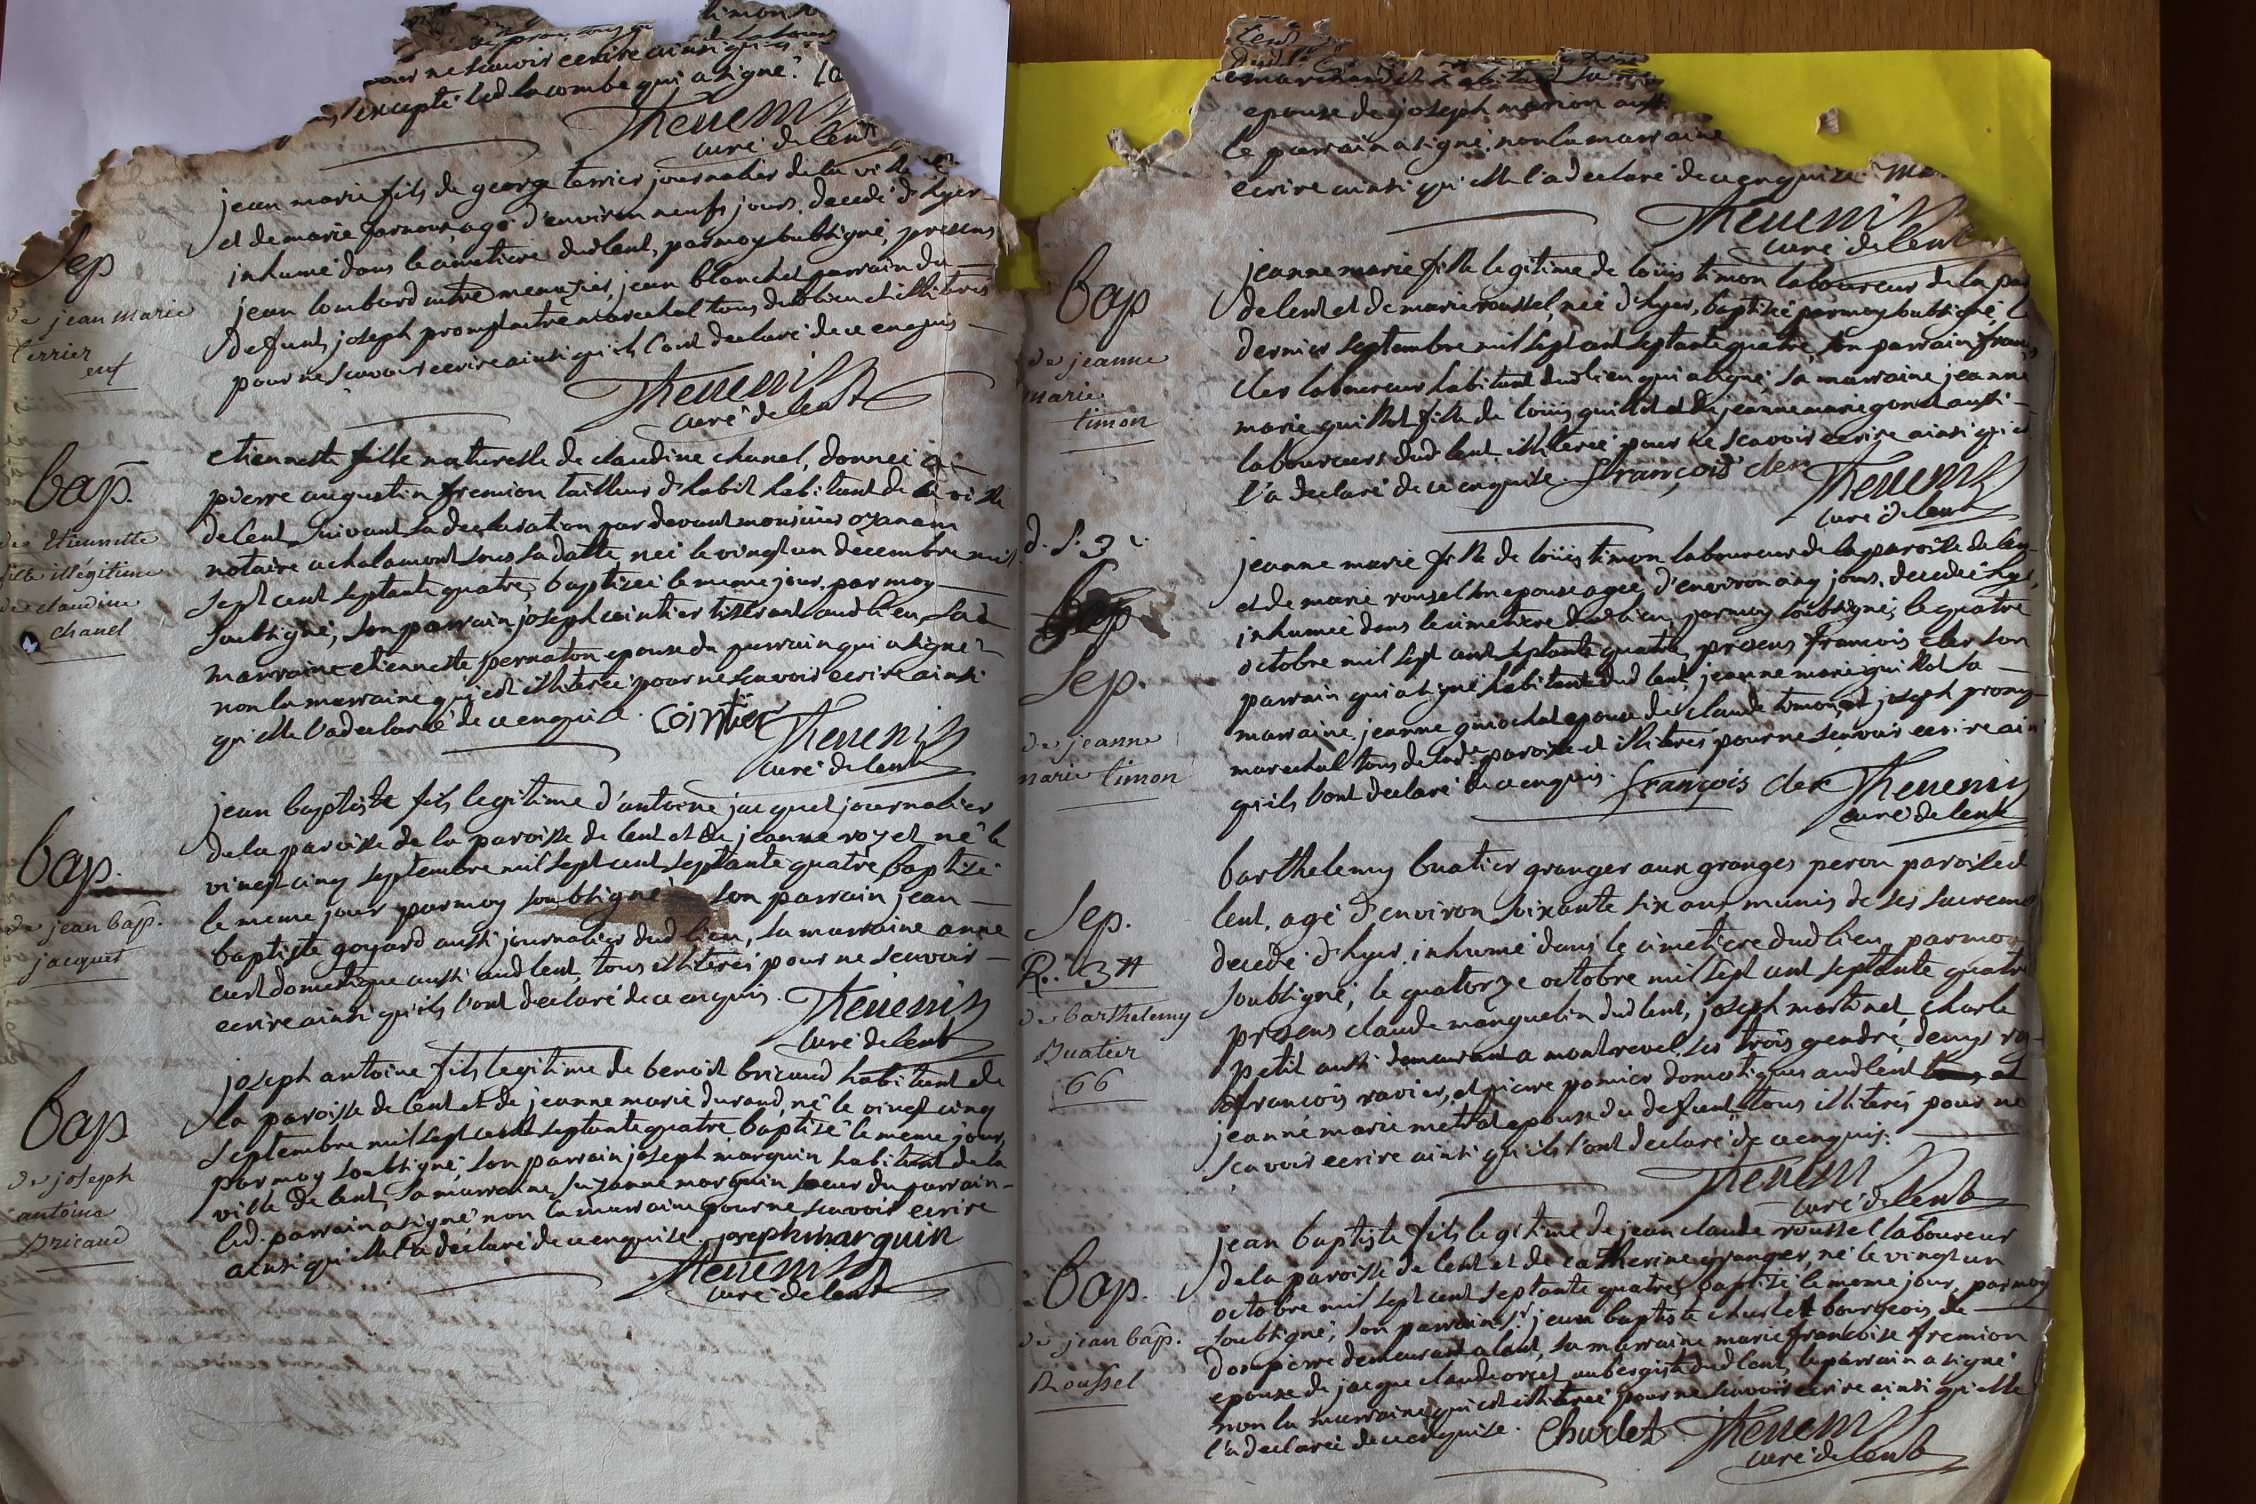 timon
pour ne scavoir ecrire ainsi qu'ils
excepté led lacombe qui a signé
Thevenin
curé de lent
Sep
de jean marie
terrier
enf
jean marie fils de george terrier journalier de la ville
et de marie farnoux, agé d'environ neufs jours, decedé d'hyer
inhumé dans le cimetiere dud lent, par moy subsigné, presens
jean lombard entre menazier, jean blanchet parrain du
defunt, joseph promp maitre marechal tous dud lieu et illiteres
pour ne scavoir ecrire ainsi qu'ils l'ont declaré de ce enquis
Thevenin
curé de lent
bap.
de etiennette
fille illégitime
de claudine
chanel
etiennette fille naturelle de claudine chanel, donneé a
pierre augustin fremion tailleur d'habit habitant de la ville
de lent suivant sa declaration par devant monsieur ozanam
notaire a chalamont sous sa datte, neé le vingt un decembre mil
sept cent septante quatre, baptizeé le meme jour par moy
soubsigné, son parrain joseph cointier tisserant aud lieu, sad
marraine etiennette pernaton epouse du parrain qui a signé
non la marraine qui est illitereé pour ne scavoir ecrire ainsi
qu'elle l'a declareé de ce enquise. Cointier Thevenin
curé de lent
bap.
de jean bap.
jacquet
jean baptiste fils legitime d'antoine jacquet journalier
de la paroisse de la paroisse de lent et de jeanne royet né le
vingt cinq septembre mil sept cent septante quatre baptizé
le meme jour par moy soubsigné son parrain jean
baptiste goyard aussi journalier dud lieu, sa marraine anne
curt domestique aussi aud lent, tous illiterés pour ne scavoir
ecrire ainsi qu'ils l'ont declaré de ce enquis. Thevenin
curé de lent
bap
de joseph
antoine
Bricaud
joseph antoine fils legitime de benoit bricaud habitant de
la paroisse de lent et de jeanne marie durand, né le vingt cinq
septembre mil sept cent septante quatre baptisé le meme jour
par moy soubsigné son parrain joseph marguin habitant de la
ville de lent, sa marraine suzanne marguin soeur du parrain
led. parrain a signé non la marraine pour ne scavoir ecrire
ainsi qu'elle l'a declaré de ce enquise. joseph marguin
Thevenin
curé de lent
lent
epouse de joseph marion aussi
le parrain a signé, non la marraine
ecrire ainsi qu'elle l'a declaré de ce enquise.
Thevenin
curé de lent
bap
de jeanne
marie
timon
jeanne marie fille legitime de loüis timon laboureur de la par
de lent et de marie roussel, neé d'hyer, baptizeé par moy subsigné, l
dernier septembre mil sept cent septante quatre, son parrain franç
cler laboureur habitant dud lieu qui a signé, sa marraine jeanne
marie guillot fille de loüis guillot et de jeanne marie gonet aussi
laboureurs dud lent, illitereé pour ne scavoir ecrire ainsi qu'el
l'a declaré de ce enquise. françois cler Thevenin
curé de lent
d. s. 3
Sep
Sep.
de jeanne
marie timon
jeanne marie fille de loüis timon laboureur de la paroisse de len
et de marie roussel son epouse ageé d'environ cinq jours, decedeé hyer
inhumeé dans le cimetiere dud lieu, par moy soubsigné, le quatre
octobre mil sept cent septante quatre, presens françois cler son
parrain qui a signé habitant dud lent, jeanne marie guillot sa
marraine, jeanne guiochat epouse de claude timon, et joseph promp
marechal tous de lad. paroisse et illiteres pour ne scavoir ecrire ain
qu'ils l'ont declaré de ce enquis. françois cler Thevenin
curé de lent
Sep.
R.. 3 tt
de barthelemy
Buatier
66
barthelemy buatier granger aux granges peron paroisse d
lent, agé d'environ soixante six ans munis de ses sacrem
decedé d'hyer, inhumé dans le cimetiere dud lieu, par moy
soubsigné, le quatorze octobre mil sept cent septante quatre
presens claude manguelin dud lent, joseph martinet, charle
petit aussi demeurant a montrevel ses trois gendre, denys ra
françois ravier, et pierre pomier domestiques aud lent
jeanne marie metrat epouse du defunt tous illiterés pour ne
scavoir ecrire ainsi qu'ils l'ont declaré de ce enquis.
Thevenin
curé de lent
bap.
de jean bap.
Roussel
jean baptiste fils legitime de jean claude roussel laboureur
de la paroisse de lent et de catherine granger, né le vingt un
octobre mil sept cent septante quatre, baptisé le meme jour, par moy
soubsigné, son parrain sr. jean baptiste churlet bourgeois de
dompierre demeurant a lent, sa marraine marie françoise fremion
epouse de jacque claude orcet aubergiste dud lent, le parrain a signé
non la marraine qui est illitereé pour ne scavoir ecrire ainsi qu'elle
l'a declareé de ce enquise. Churlet Thevenin
curé de lent